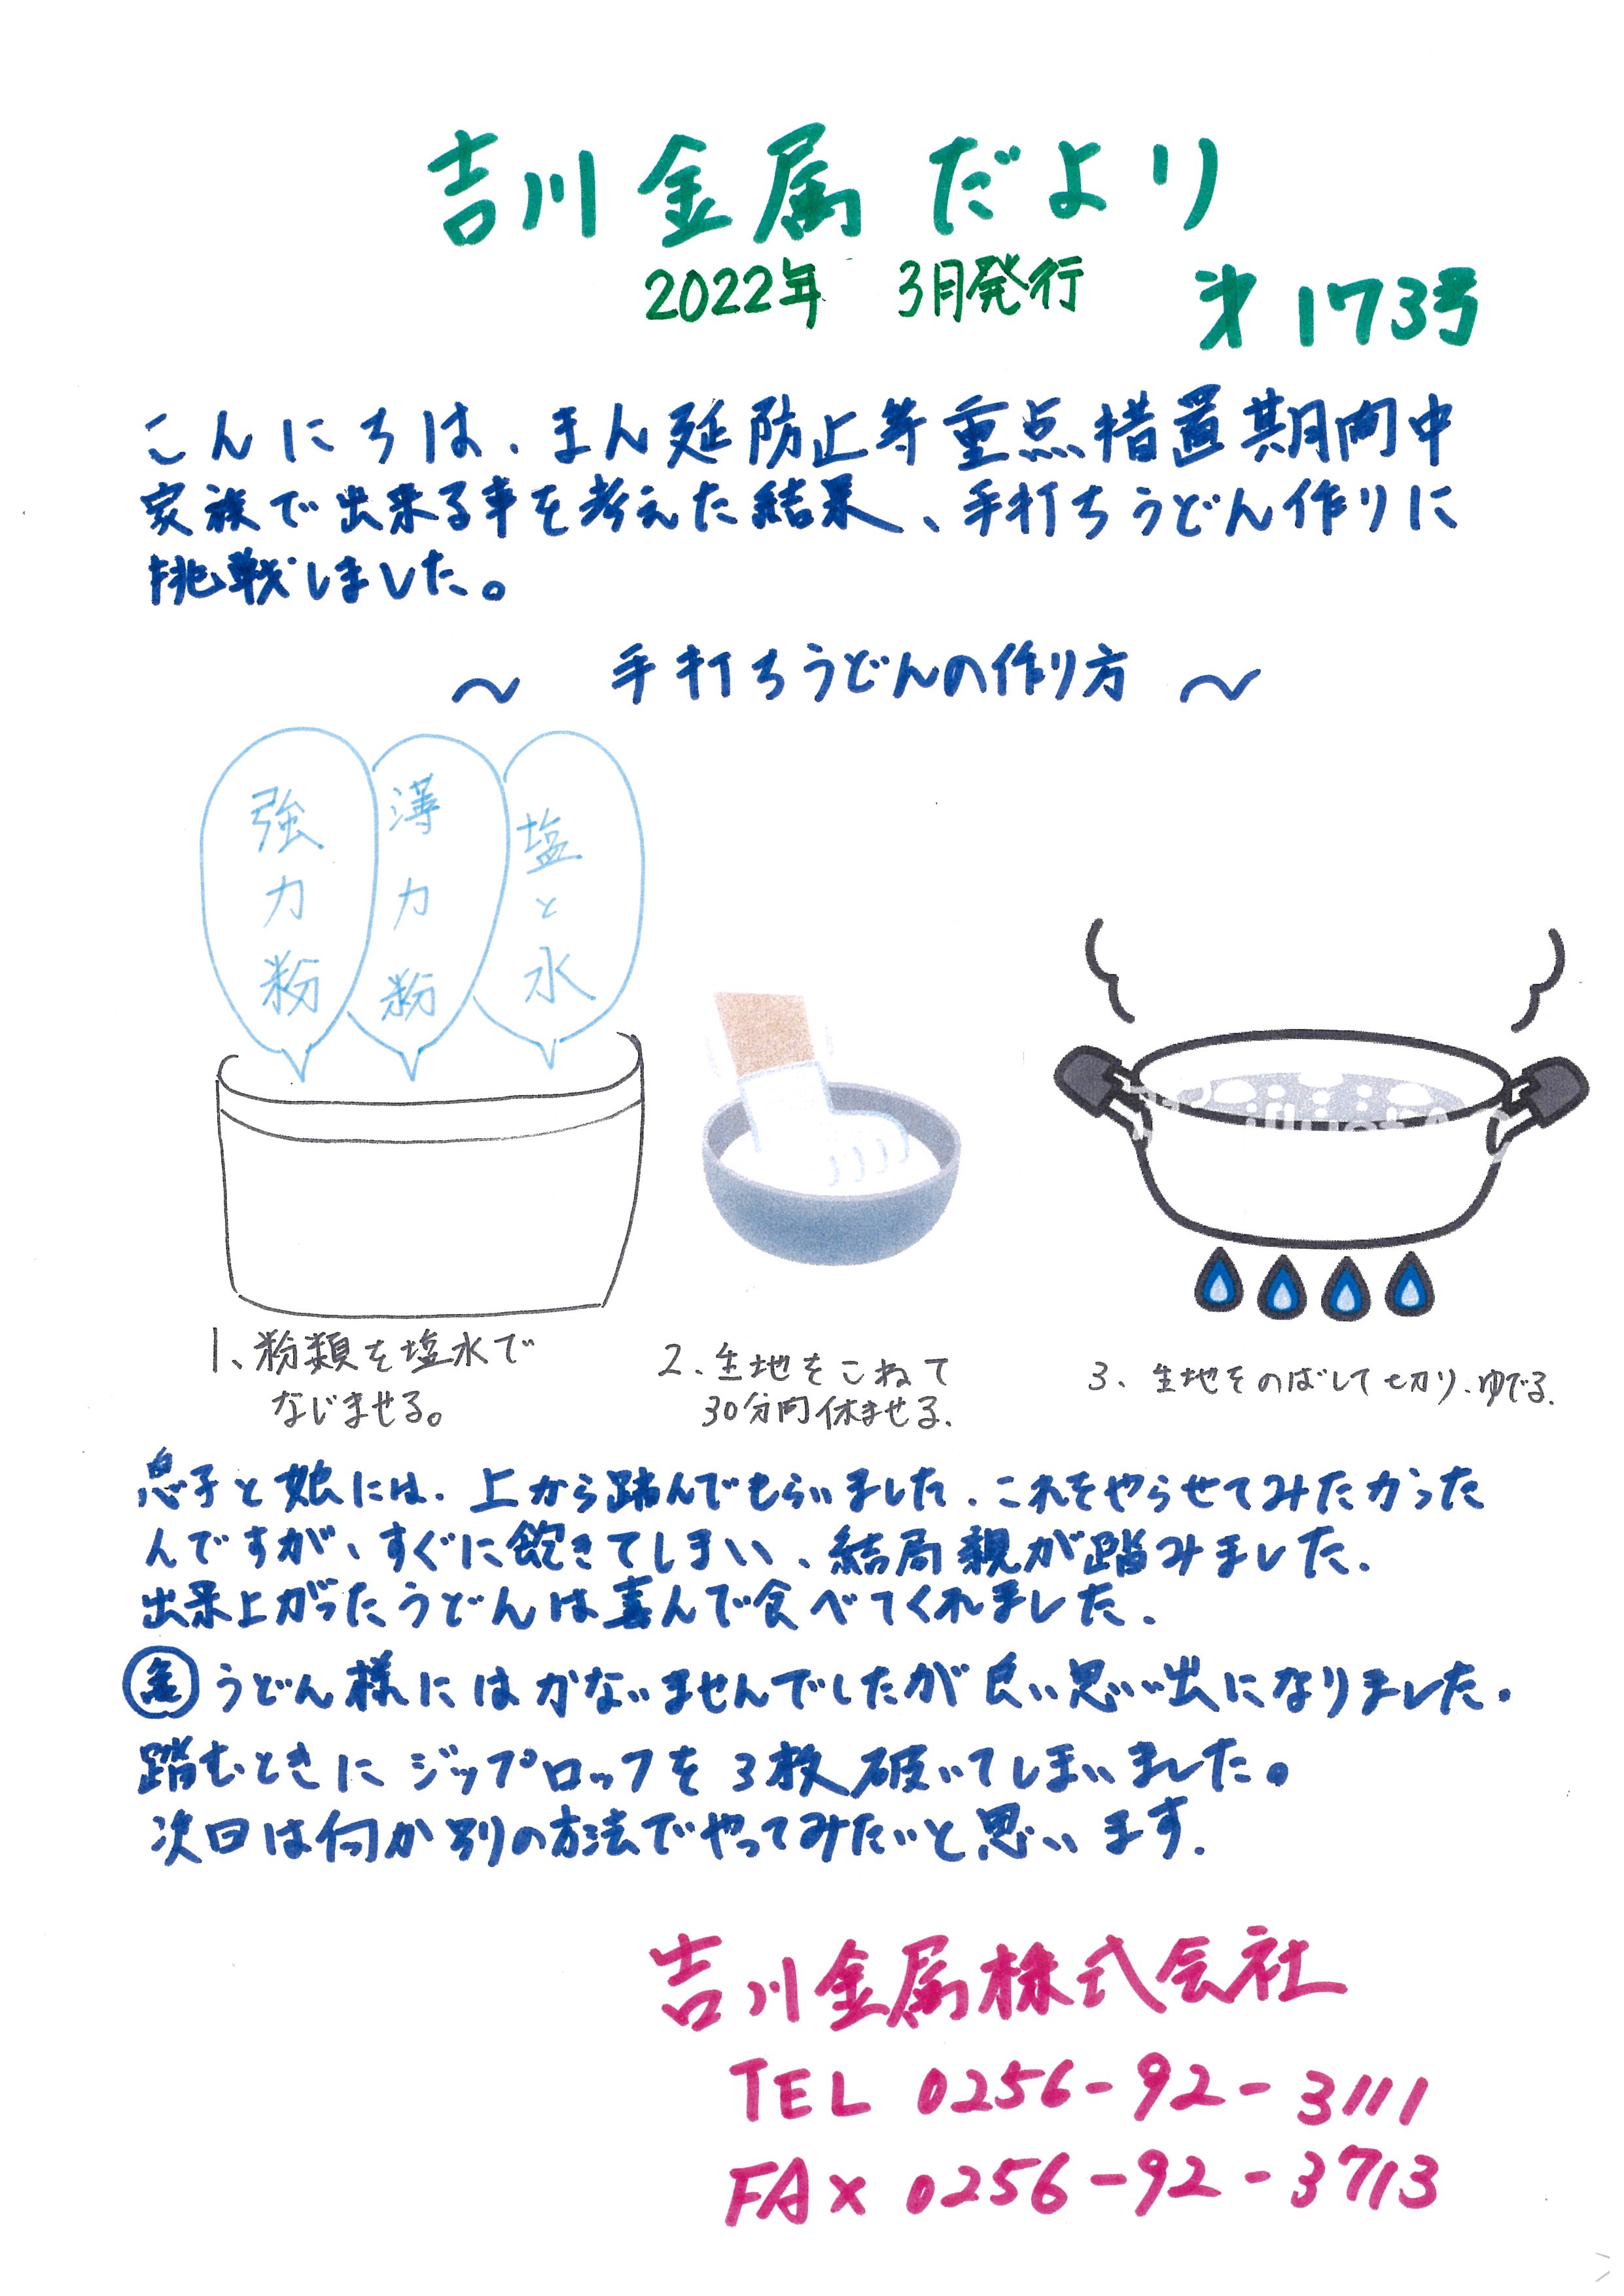 吉川金属だより
2022年 3月発行
才173号
こんにちは、まん延防止等重点措置期間中
家族で出来る事を考えた結果、手打ちうどん作りに
挑戦しました。
～ 手打ちうどんの作り方 ～
強力粉
薄力粉
塩と水
1、粉類を塩水で
なじませる。
2、生地をこねて
30分間休ませる。
3、生地をのばして切り、ゆでる。
息子と娘には、上から踏んでもらいました。これをやらせてみたかった
んですが、すぐに飽きてしまい、結局親が踏みました。
出来上がったうどんは喜んで食べてくれました。
うどん様にはかないませんでしたが良い思い出になりました。
踏むときにジップロックを3枚破いてしまいました。
次回は何か別の方法でやってみたいと思います。
吉川金属株式会社
TEL 0256-92-3111
FAX 0256-92-3713